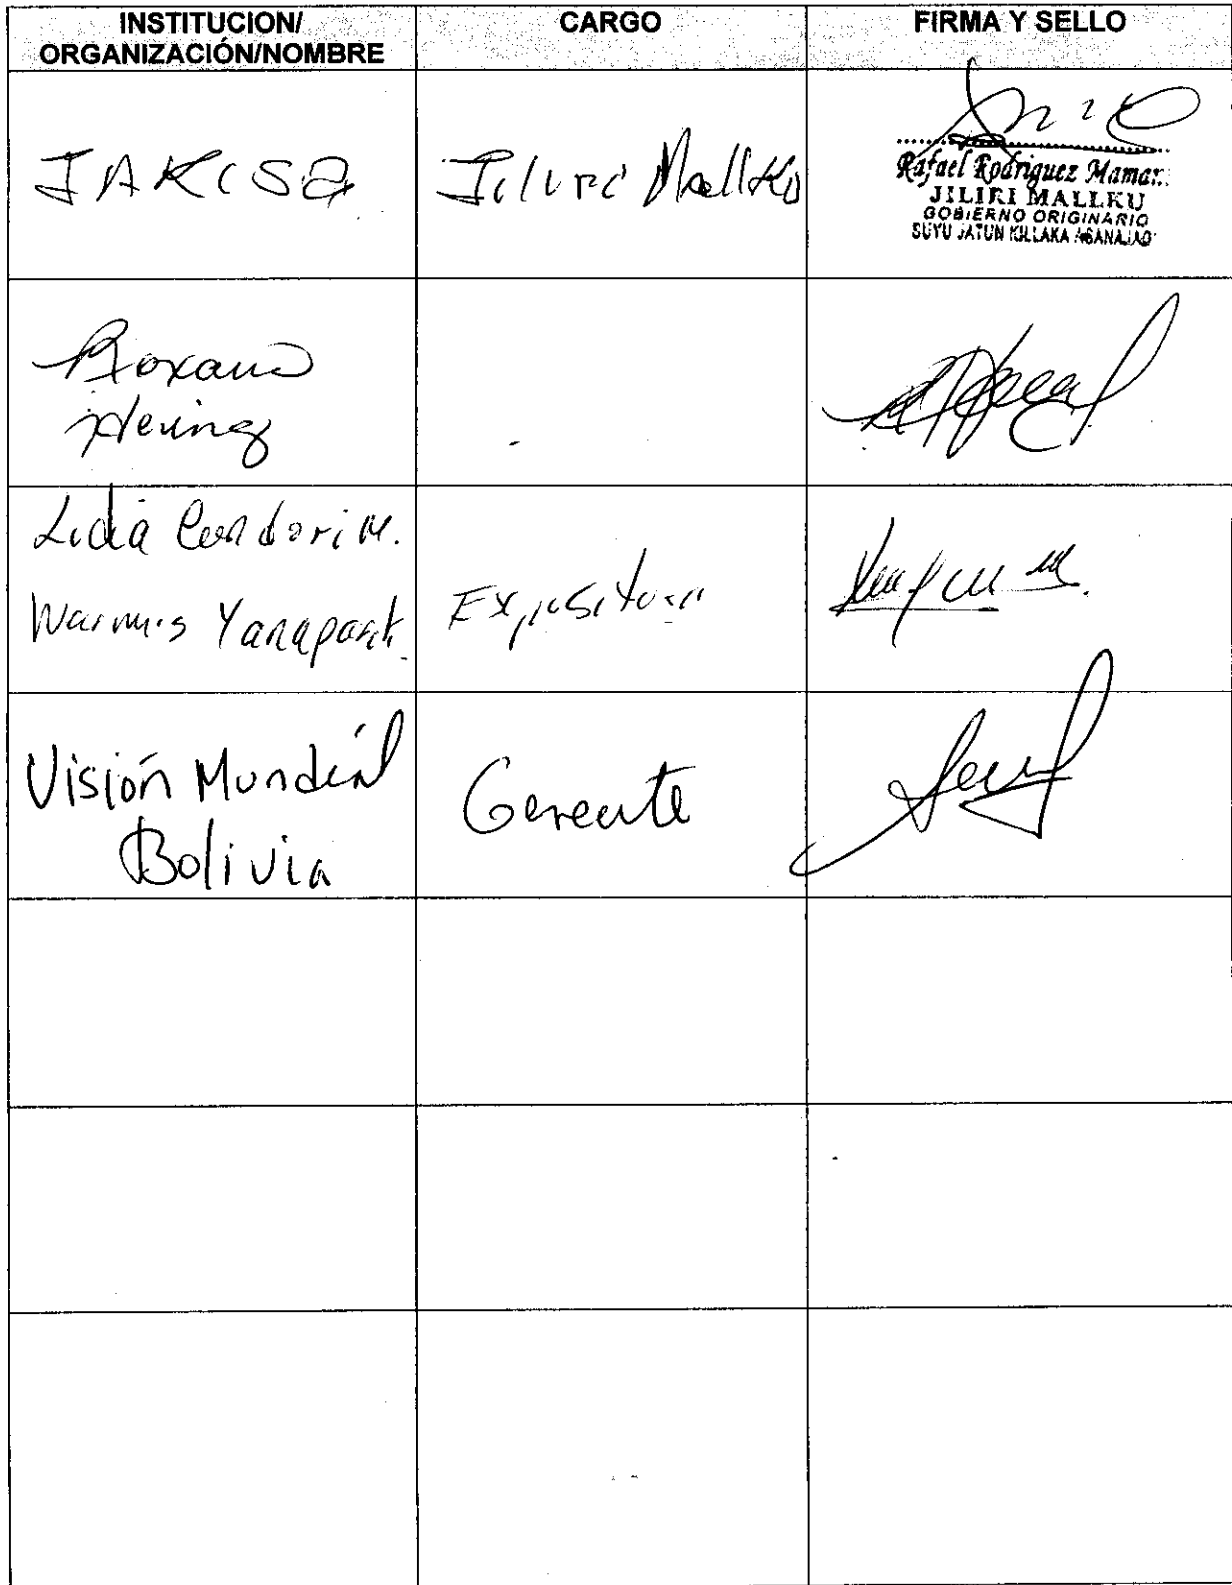 INSTITUCION/
ORGANIZACIÓN/NOMBRE
CARGO
FIRMA Y SELLO
JAKISA
Jiliri Mallku
Rafael Rodriguez Maman
JILIRI MALLKU
GOBIERNO ORIGINARIO
SUYU JATUN KILLAKA
Roxana
Lidia Condori M.
Warmis Yanapart.
Expositora
Visión Mundial
Bolivia
Gerente